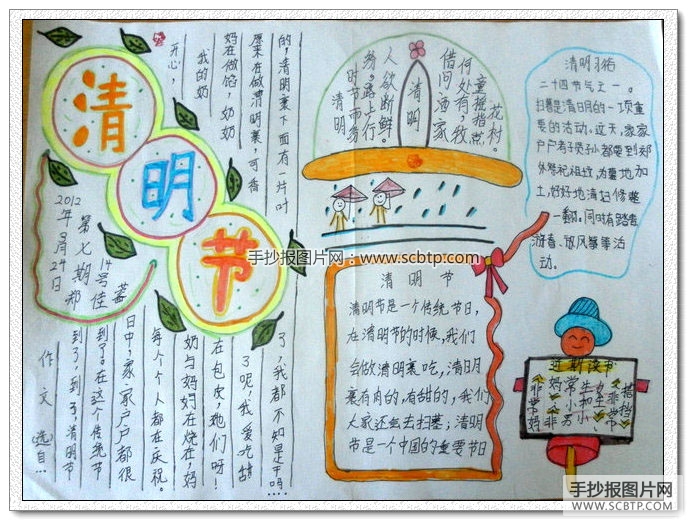 清
明
节
2012
年3月24日
第七期
14号
清明
清明
时节雨纷
纷,路上行
人欲断魂。
借问酒家
何处有,牧
童摇指点
花村。
清明习俗
二十四节气之一。
扫墓是清明的一项重
要的活动。这天,家家
户户老子贤孙都要到郊
外祭祀祖坟,为墓地加
土,好好地清扫修整
一翻。同时有踏青
游春、放风筝等活
动。
手抄报图片网:www.scbtp.com
清明节
清明节是一个传统节日,
在清明节的时候,我们
会做清明裹吃,清明
裹有肉的,有甜的,我们
大家还会去扫墓;清明
节是一个中国的重要节日
作文选自…
到了,到了,清明节
到了。在这个传统节
日中,家家户户都很
每个人都在庆祝。
奶与妈妈在烧在,妈
在包皮,她们呀!
了呢,我爱吃甜
了,我都不知是干吗…
开心,
我的奶
妈在做馅,奶奶
原来在做清明裹,可香
的,清明裹下面有一片叶
近期读书
非常妈妈
非常小子
非常搭挡
手抄报图片网
WWW.SCBTP.COM